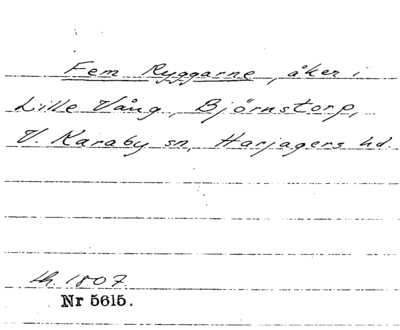 Fem Ryggarne, åker i
Lille Vång, Björnstorp,
V. Karaby sn, Harjagers hd.
lh. 1807.
Nr 5615.